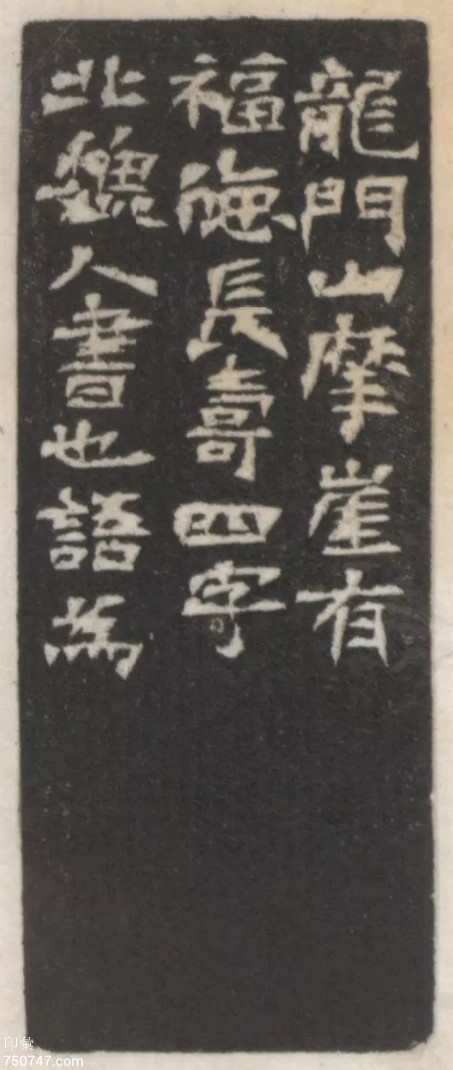 龍門山摩崖有
福德長壽四字
北魏人書也語為
印彙
750747.com